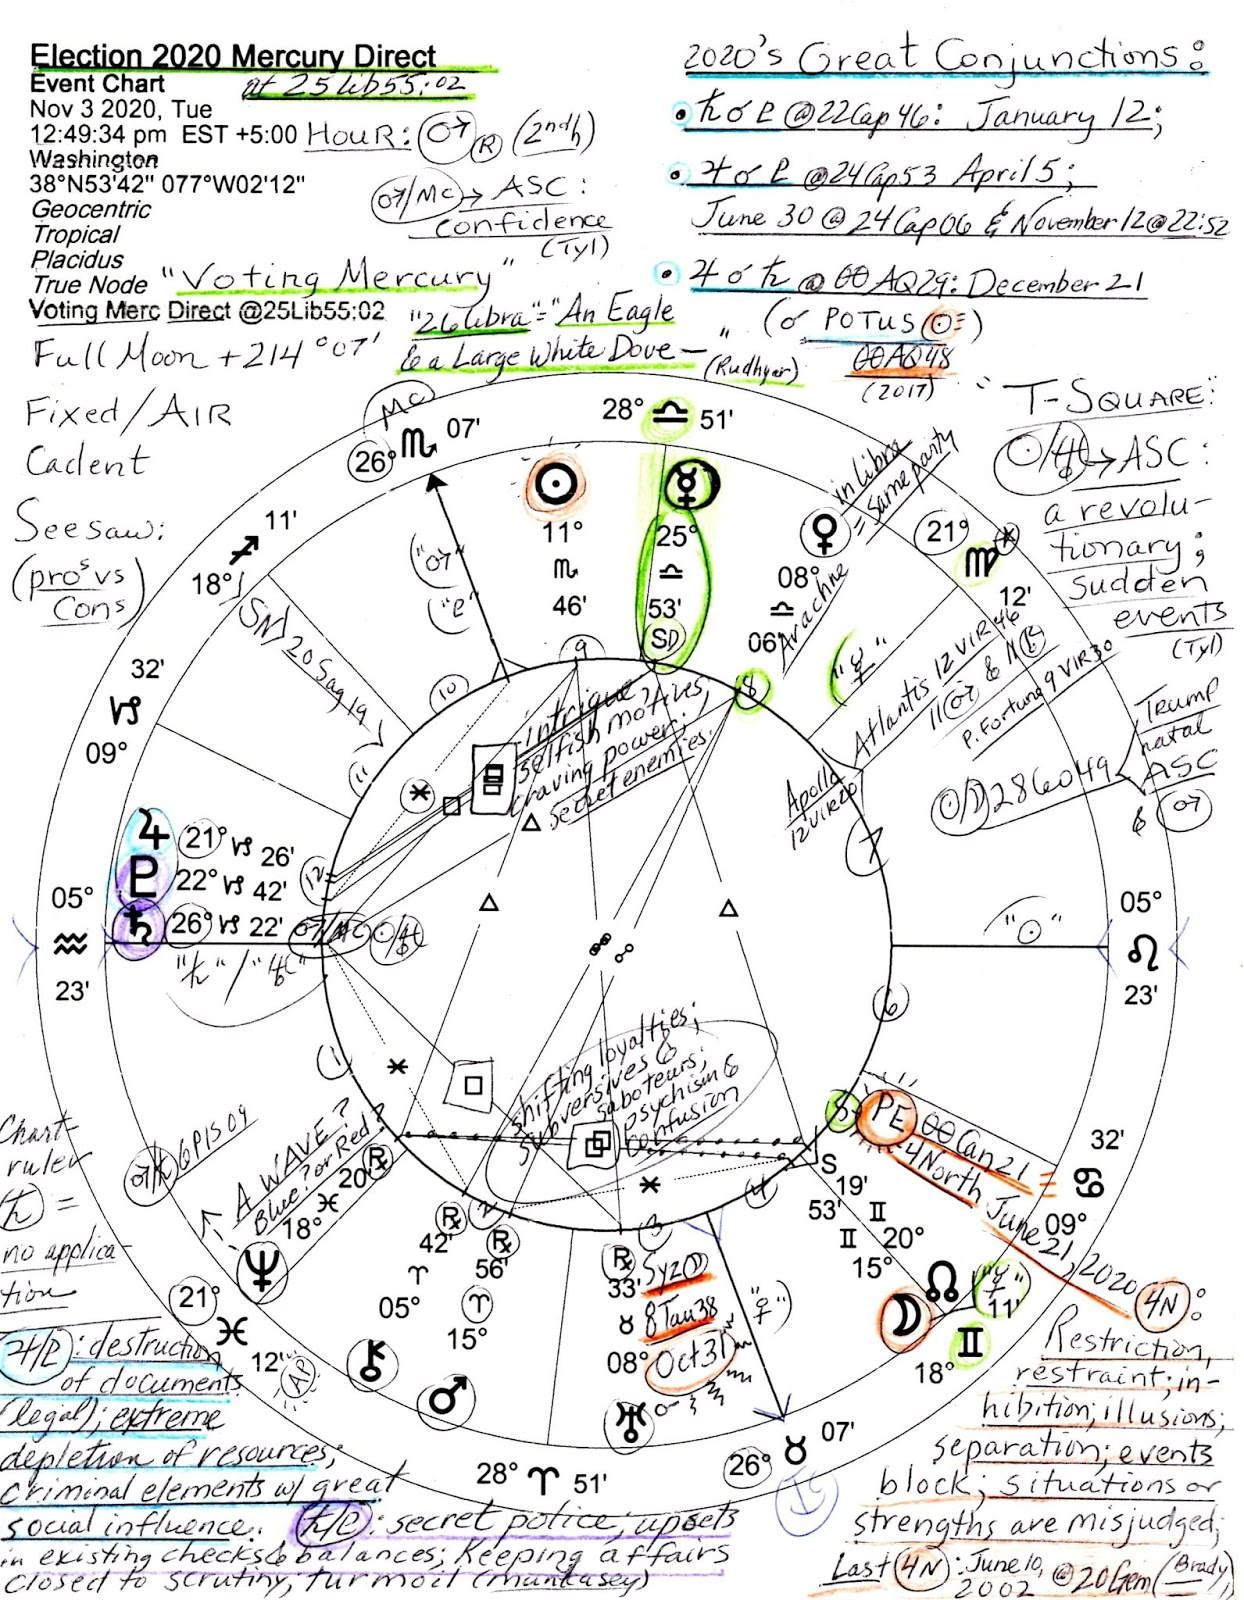 Election 2020 Mercury Direct
Event Chart at 25Lib55:02
Nov 3 2020, Tue
12:49:34 pm EST +5:00 HOUR: ♂ ℞ (2ndh)
Washington
38°N53'42" 077°W02'12"
Geocentric
Tropical
Placidus
True Node
Voting Merc Direct @25Lib55:02
♂/MC → ASC:
confidence
(Tyl)
"Voting Mercury"
"26 Libra" = "An Eagle
& a Large White Dove—"
(Rudhyar)
Full Moon +214°07'
Fixed/AIR
Cadent
Seesaw:
(pros vs
cons)
2020's Great Conjunctions:
• ♄ ☌ ♇ @22Cap46: January 12;
• ♃ ☌ ♇ @24Cap53 April 5;
June 30 @ 24Cap06 & November 12 @ 22:52
• ♃ ☌ ♄ @ 00AQ29: December 21
(☌ POTUS ☉ =)
00AQ48
(2017)
"T-SQUARE:"
☉/♅ → ASC:
a revolu-
tionary;
sudden
events
(Tyl)
MC
26° ♏ 07'
28° ♎ 51'
21° ♍ 12'
☉ 11° ♏ 46'
☿ 25° ♎ 53' SD
♀ 08° ♎ 06'
in Libra
= same party
Arachne
"☿"
Atlantis 12 VIR 46
P. Fortune 9 VIR 30
Apollo
12 VIR 20
Trump
natal
ASC
& ♂
☉/☽ 28Leo49
11'
♐
18°
SN 20 Sag 19
32'
♑
09°
("♂"
("♇"
intrigue
selfish motives,
craving power;
secret enemies.
♃ 21° ♑ 26'
♇ 22° ♑ 42'
♄ 26° ♑ 22'
♂/MC ☉/♅
05°
♒
23'
"♄" / "♅"
"☉"
05°
♌
23'
9
8
7
6
5
4
3
2
1
12
11
10
shifting loyalties;
subversives &
saboteurs;
psychism &
confusion
PE 00Can21
=
4North June 21, 2020
32'
♋
09°
4N:
Restriction,
restraint; in-
hibition; illusions;
separation; events
block; situations or
strengths are misjudged;
Last 4N: June 10,
2002 @20Gem (Brady)
S
19'
♊
20°
☊
53'
♊
15°
☽
"☿"
11'
♊
18°
Chart-
ruler
♄ =
no applica-
tion
♂/♄ 6PIS09
A WAVE?
Blue? or Red?
℞
20'
♓
18°
♆
21°
♓
12'
AP
℞
42'
♈
05°
⚷
℞
56'
♈
15°
♂
28° ♈ 51'
℞
33'
♉
08°
♅
Syz
8Tau38
Oct 31
"♀"
26° ♉ 07'
IC
♃/♇: destruction
of documents
(legal); extreme
depletion of resources;
criminal elements w/ great
social influence. ♄/♇: secret police; upsets
in existing checks & balances; Keeping affairs
closed to scrutiny; turmoil (Munkasey)